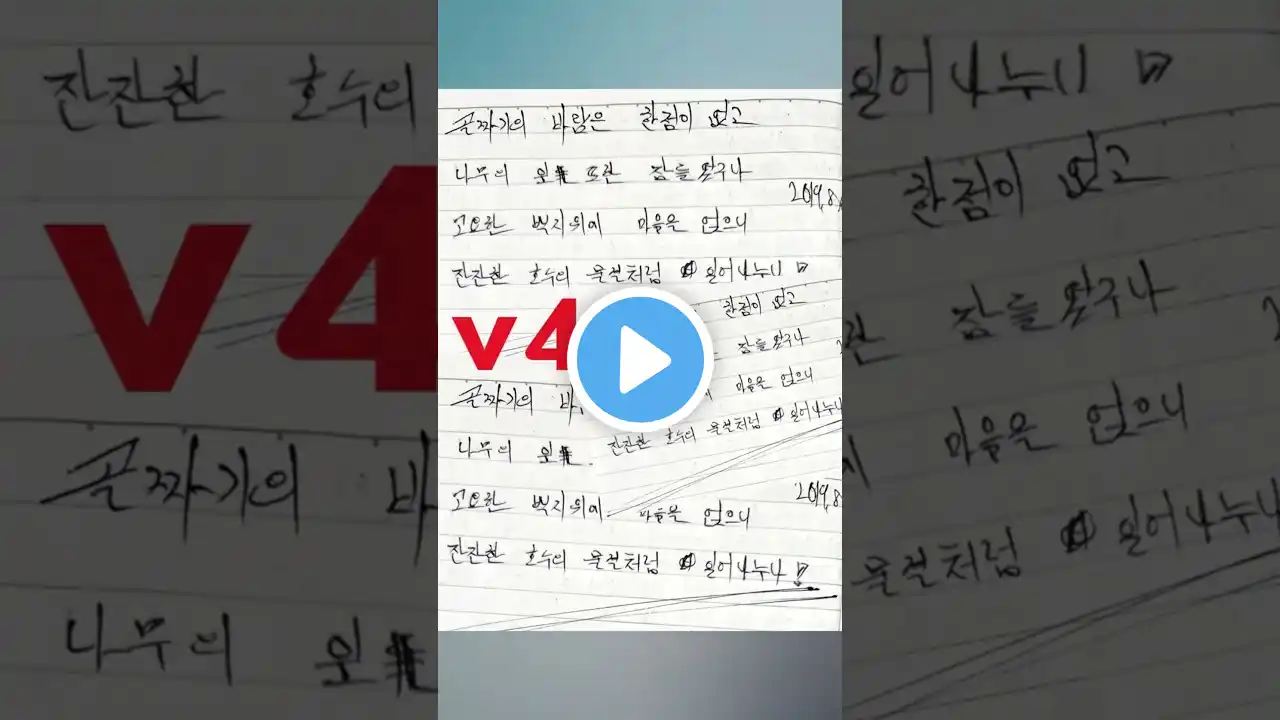 골짜기의 바람은 한점이 없고
나무의 또한 잠들었구나
2019.8
고요한 백지위에 마음을 얹으니
잔잔한 호수의 물결처럼 일어나누나
한점이 없고
v4
잠들었구나
골짜기의 바
마음을 얹으니
잔잔한 호수의 물결처럼 일어나누나
나무의
2019.8
고요한 백지위에 마음을 얹으니
잔잔한 호수의 물결처럼 일어나누나
잔잔한 호수의
v4
골짜기의 바
나무의
일어나누나
한점이 없고
잠들었구나
마음을 얹으니
물결처럼 일어나누나